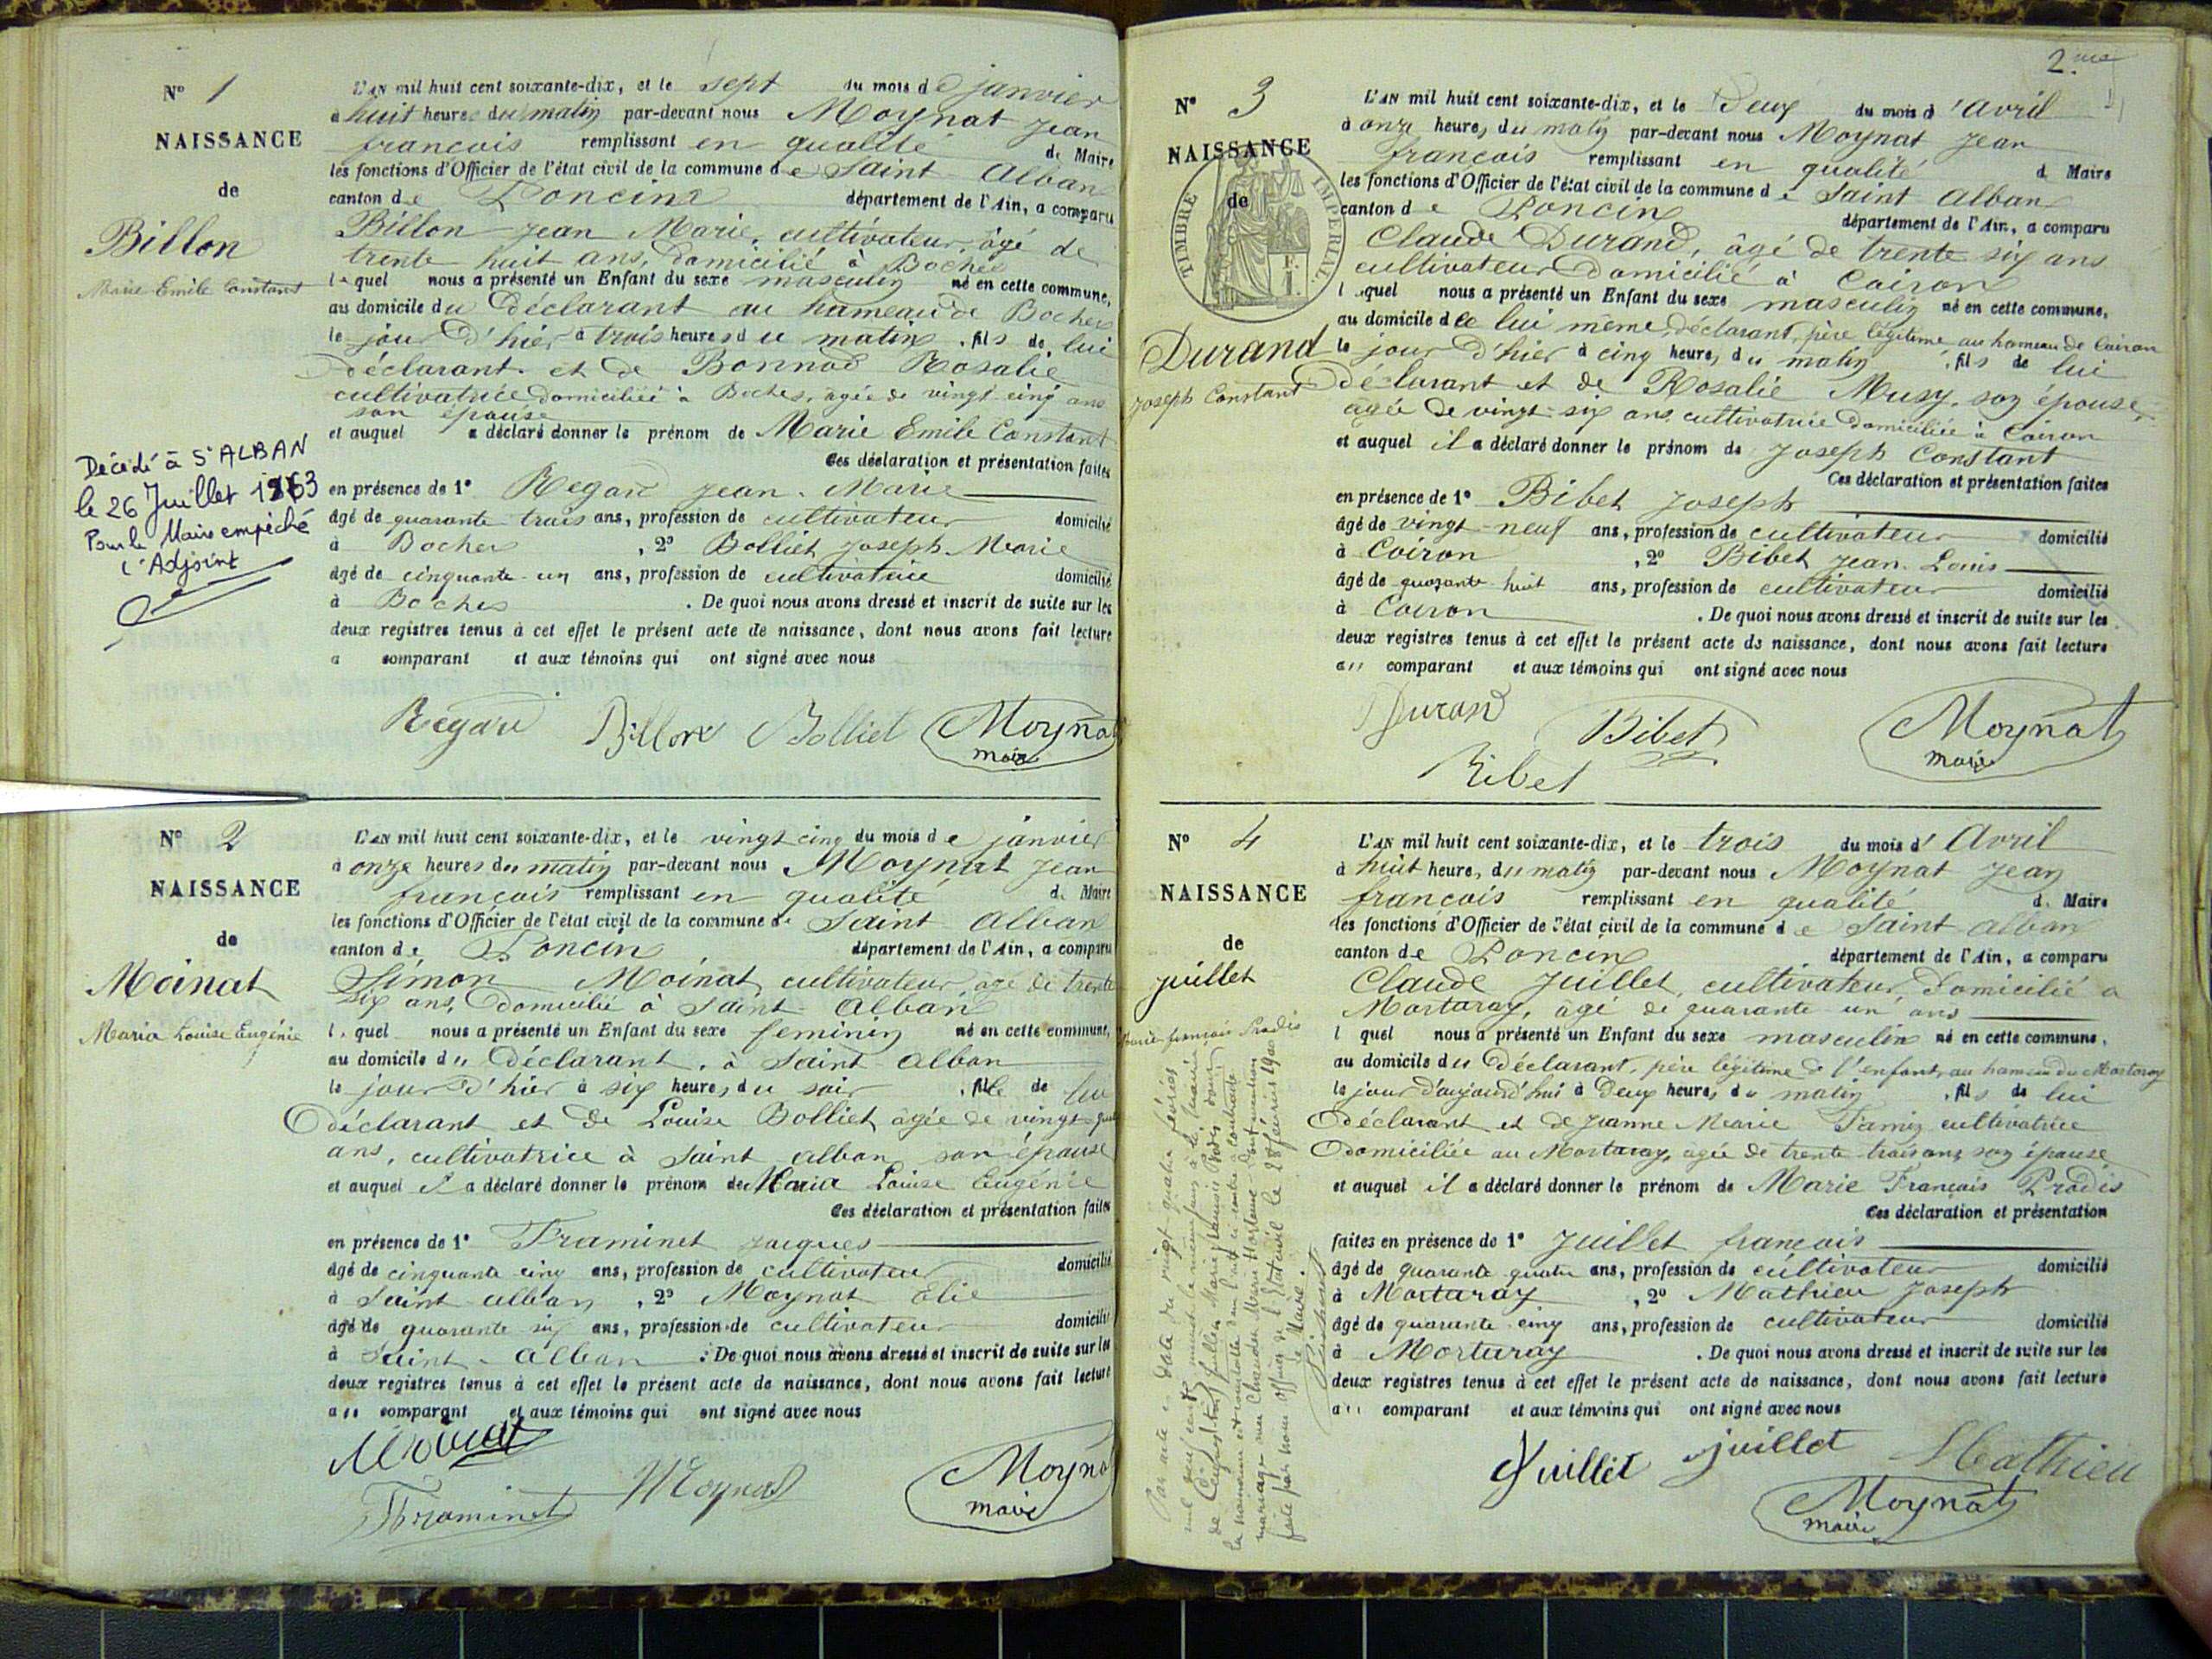 N° 1
NAISSANCE
de
Billon
Marie Emile Constant
Décédé à St ALBAN
le 26 Juillet 1963
Pour le Maire empêché
l'Adjoint
L'AN mil huit cent soixante-dix, et le sept du mois de janvier
à huit heures du matin par-devant nous Moynat Jean
francois remplissant en qualité de Maire
les fonctions d'Officier de l'état civil de la commune de Saint Alban
canton de Poncin département de l'Ain, a comparu
Billon Jean Marie, cultivateur, âgé de
trente huit ans, domicilié à Boches
lequel nous a présenté un Enfant du sexe masculin né en cette commune,
au domicile du déclarant au hameau de Boches
le jour d'hier à trois heures du matin, fils de lui
déclarant et de Bonnod Rosalie
cultivatrice domiciliée à Boches, agée de vingt cinq ans
son épouse
et auquel a déclaré donner le prénom de Marie Emile Constant
Ces déclaration et présentation faites
en présence de 1° Regard Jean Marie
âgé de quarante trois ans, profession de cultivateur domicilié
à Boches, 2° Bolliet Joseph Marie
âgé de cinquante un ans, profession de cultivatrice domicilié
à Boches. De quoi nous avons dressé et inscrit de suite sur les
deux registres tenus à cet effet le présent acte de naissance, dont nous avons fait lecture
a comparant et aux témoins qui ont signé avec nous
Regard Billon Bolliet Moynat
maire
N° 2
NAISSANCE
de
Moinat
Maria Louise Eugénie
L'AN mil huit cent soixante-dix, et le vingt cinq du mois de janvier
à onze heures du matin par-devant nous Moynat Jean
françois remplissant en qualité de Maire
les fonctions d'Officier de l'état civil de la commune de Saint Alban
canton de Poncin département de l'Ain, a comparu
Simon Moinat, cultivateur, âgé de trente
six ans, domicilié à Saint Alban
lequel nous a présenté un Enfant du sexe feminin né en cette commune,
au domicile du déclarant, à Saint Alban
le jour d'hier à six heures du soir, fille de lui
déclarant et de Louise Bolliet, agée de vingt
ans, cultivatrice à Saint Alban, son épouse
et auquel il a déclaré donner le prénom de Maria Louise Eugénie
Ces déclaration et présentation faites
en présence de 1° Framinet Jacques
âgé de cinquante cinq ans, profession de cultivateur domicilié
à Saint Alban, 2° Moynat Elie
âgé de quarante six ans, profession de cultivateur domicilié
à Saint Alban. De quoi nous avons dressé et inscrit de suite sur les
deux registres tenus à cet effet le présent acte de naissance, dont nous avons fait lecture
au comparant et aux témoins qui ont signé avec nous
Moinat
Framinet Moynat Moynat
maire
2.me
N° 3
NAISSANCE
de
TIMBRE IMPERIAL
Durand
Joseph Constant
L'AN mil huit cent soixante-dix, et le Deux du mois d'avril
à onze heures du matin par-devant nous Moynat Jean
françois remplissant en qualité de Maire
les fonctions d'Officier de l'état civil de la commune de Saint Alban
canton de Poncin département de l'Ain, a comparu
Claude Durand, âgé de trente six ans
cultivateur domicilié à Coiron
lequel nous a présenté un Enfant du sexe masculin né en cette commune,
au domicile de lui même déclarant, père légitime au hameau de Coiron
le jour d'hier à cinq heures du matin, fils de lui
déclarant et de Rosalie Musy, son épouse
agée de vingt-six ans, cultivatrice domiciliée à Coiron
et auquel il a déclaré donner le prénom de Joseph Constant
Ces déclaration et présentation faites
en présence de 1° Bibet Joseph
âgé de vingt-neuf ans, profession de cultivateur domicilié
à Coiron, 2° Bibet Jean Louis
âgé de quarante huit ans, profession de cultivateur domicilié
à Coiron. De quoi nous avons dressé et inscrit de suite sur les
deux registres tenus à cet effet le présent acte de naissance, dont nous avons fait lecture
au comparant et aux témoins qui ont signé avec nous
Durand Bibet Moynat
maire
Bibet
N° 4
NAISSANCE
de
juillet
Marie françois Prodis
Par acte en date du vingt quatre février
mil neuf cent
mariage
faite par nous officier de l'Etat civil le 28 février 1900
le Maire.
L'AN mil huit cent soixante-dix, et le trois du mois d'Avril
à huit heures du matin par-devant nous Moynat Jean
françois remplissant en qualité de Maire
les fonctions d'Officier de l'état civil de la commune de Saint Alban
canton de Poncin département de l'Ain, a comparu
Claude Juillet, cultivateur, domicilié à
Mortaray, âgé de quarante un ans
lequel nous a présenté un Enfant du sexe masculin né en cette commune,
au domicile du déclarant, père légitime de l'enfant, au hameau du Mortaray
le jour d'aujourd'hui à Deux heures du matin, fils de lui
déclarant et de Jeanne Marie cultivatrice
domiciliée au Mortaray, agée de trente trois ans, son épouse
et auquel il a déclaré donner le prénom de Marie François Prodis
Ces déclaration et présentation
faites en présence de 1° Juillet francois
âgé de quarante quatre ans, profession de cultivateur domicilié
à Mortaray, 2° Mathieu Joseph
âgé de quarante cinq ans, profession de cultivateur domicilié
à Mortaray. De quoi nous avons dressé et inscrit de suite sur les
deux registres tenus à cet effet le présent acte de naissance, dont nous avons fait lecture
au comparant et aux témoins qui ont signé avec nous
Juillet juillet Mathieu
Moynat
maire